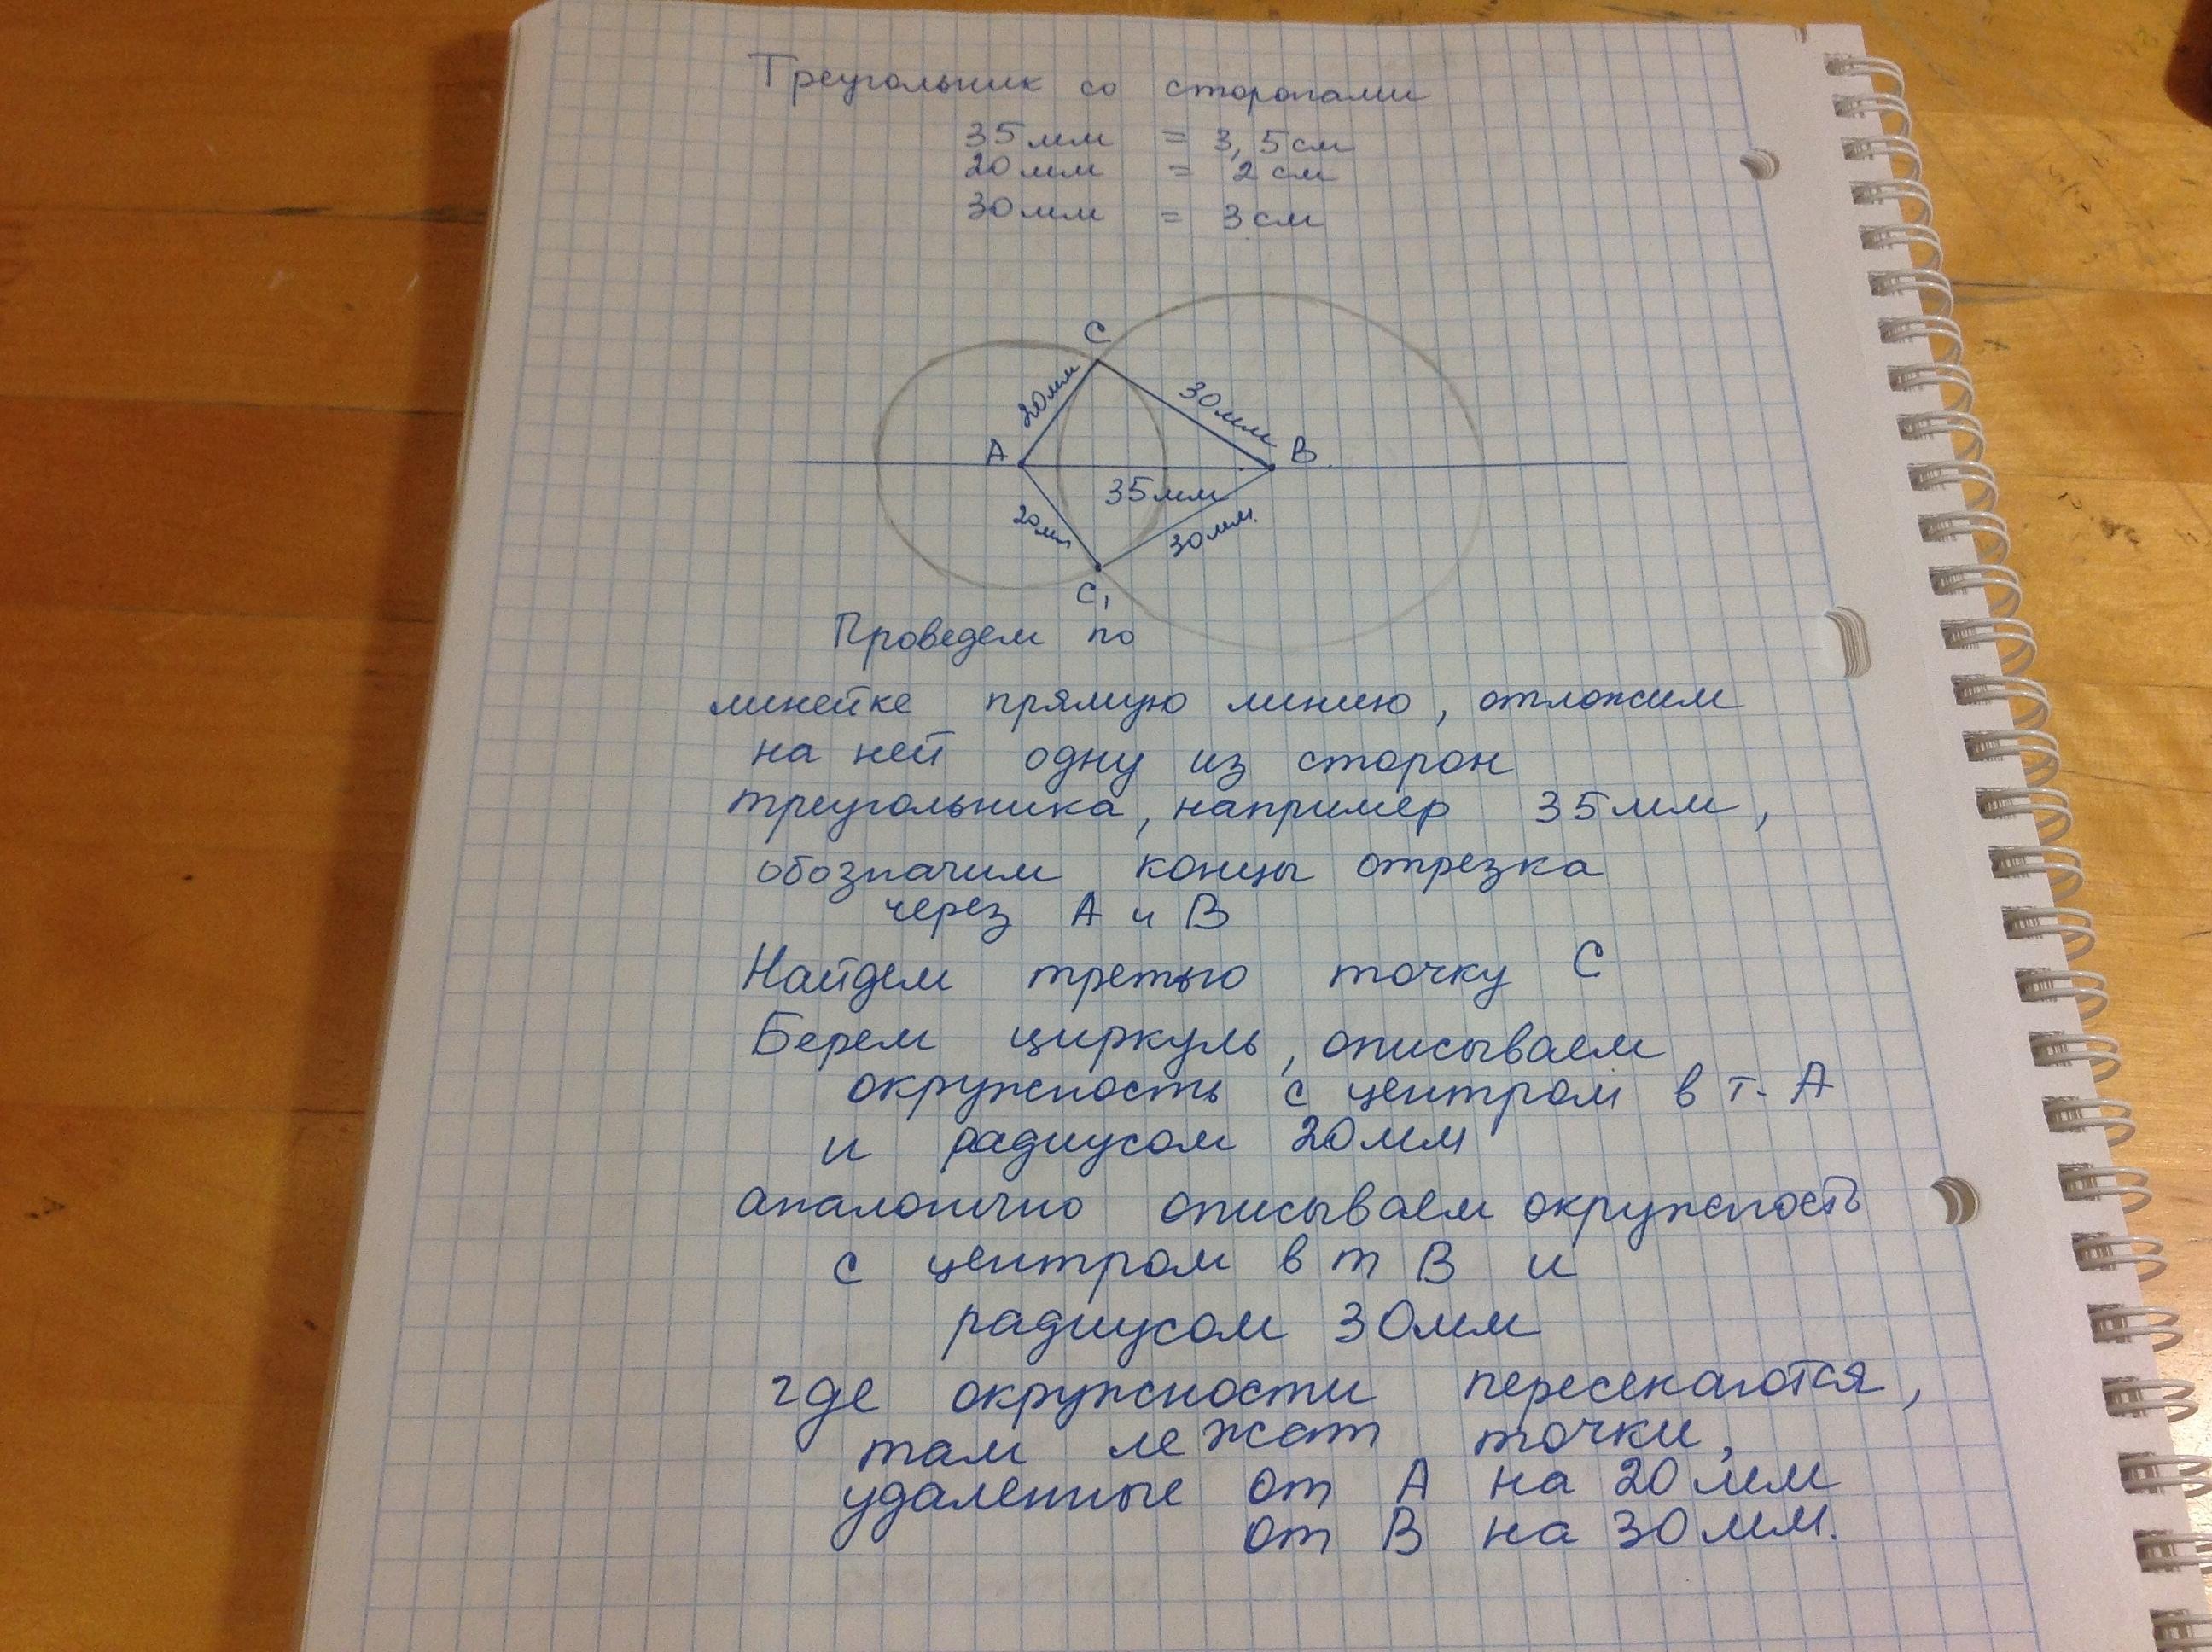 Треугольник со сторонами
35мм = 3,5см
20мм = 2см
30мм = 3см
C
20мм
30мм
A
B.
35мм
20мм
30мм.
C1
Проведем по
линейке прямую линию, отложим
на ней одну из сторон
треугольника, например 35мм,
обозначим концы отрезка
через A и B
Найдем третью точку C
Берем циркуль, описываем
окружность с центром в т. A
и радиусом 20мм
аналогично описываем окружность
с центром в т B и
радиусом 30мм
где окружности пересекаются,
там лежат точки,
удаленные от A на 20мм
от B на 30мм.